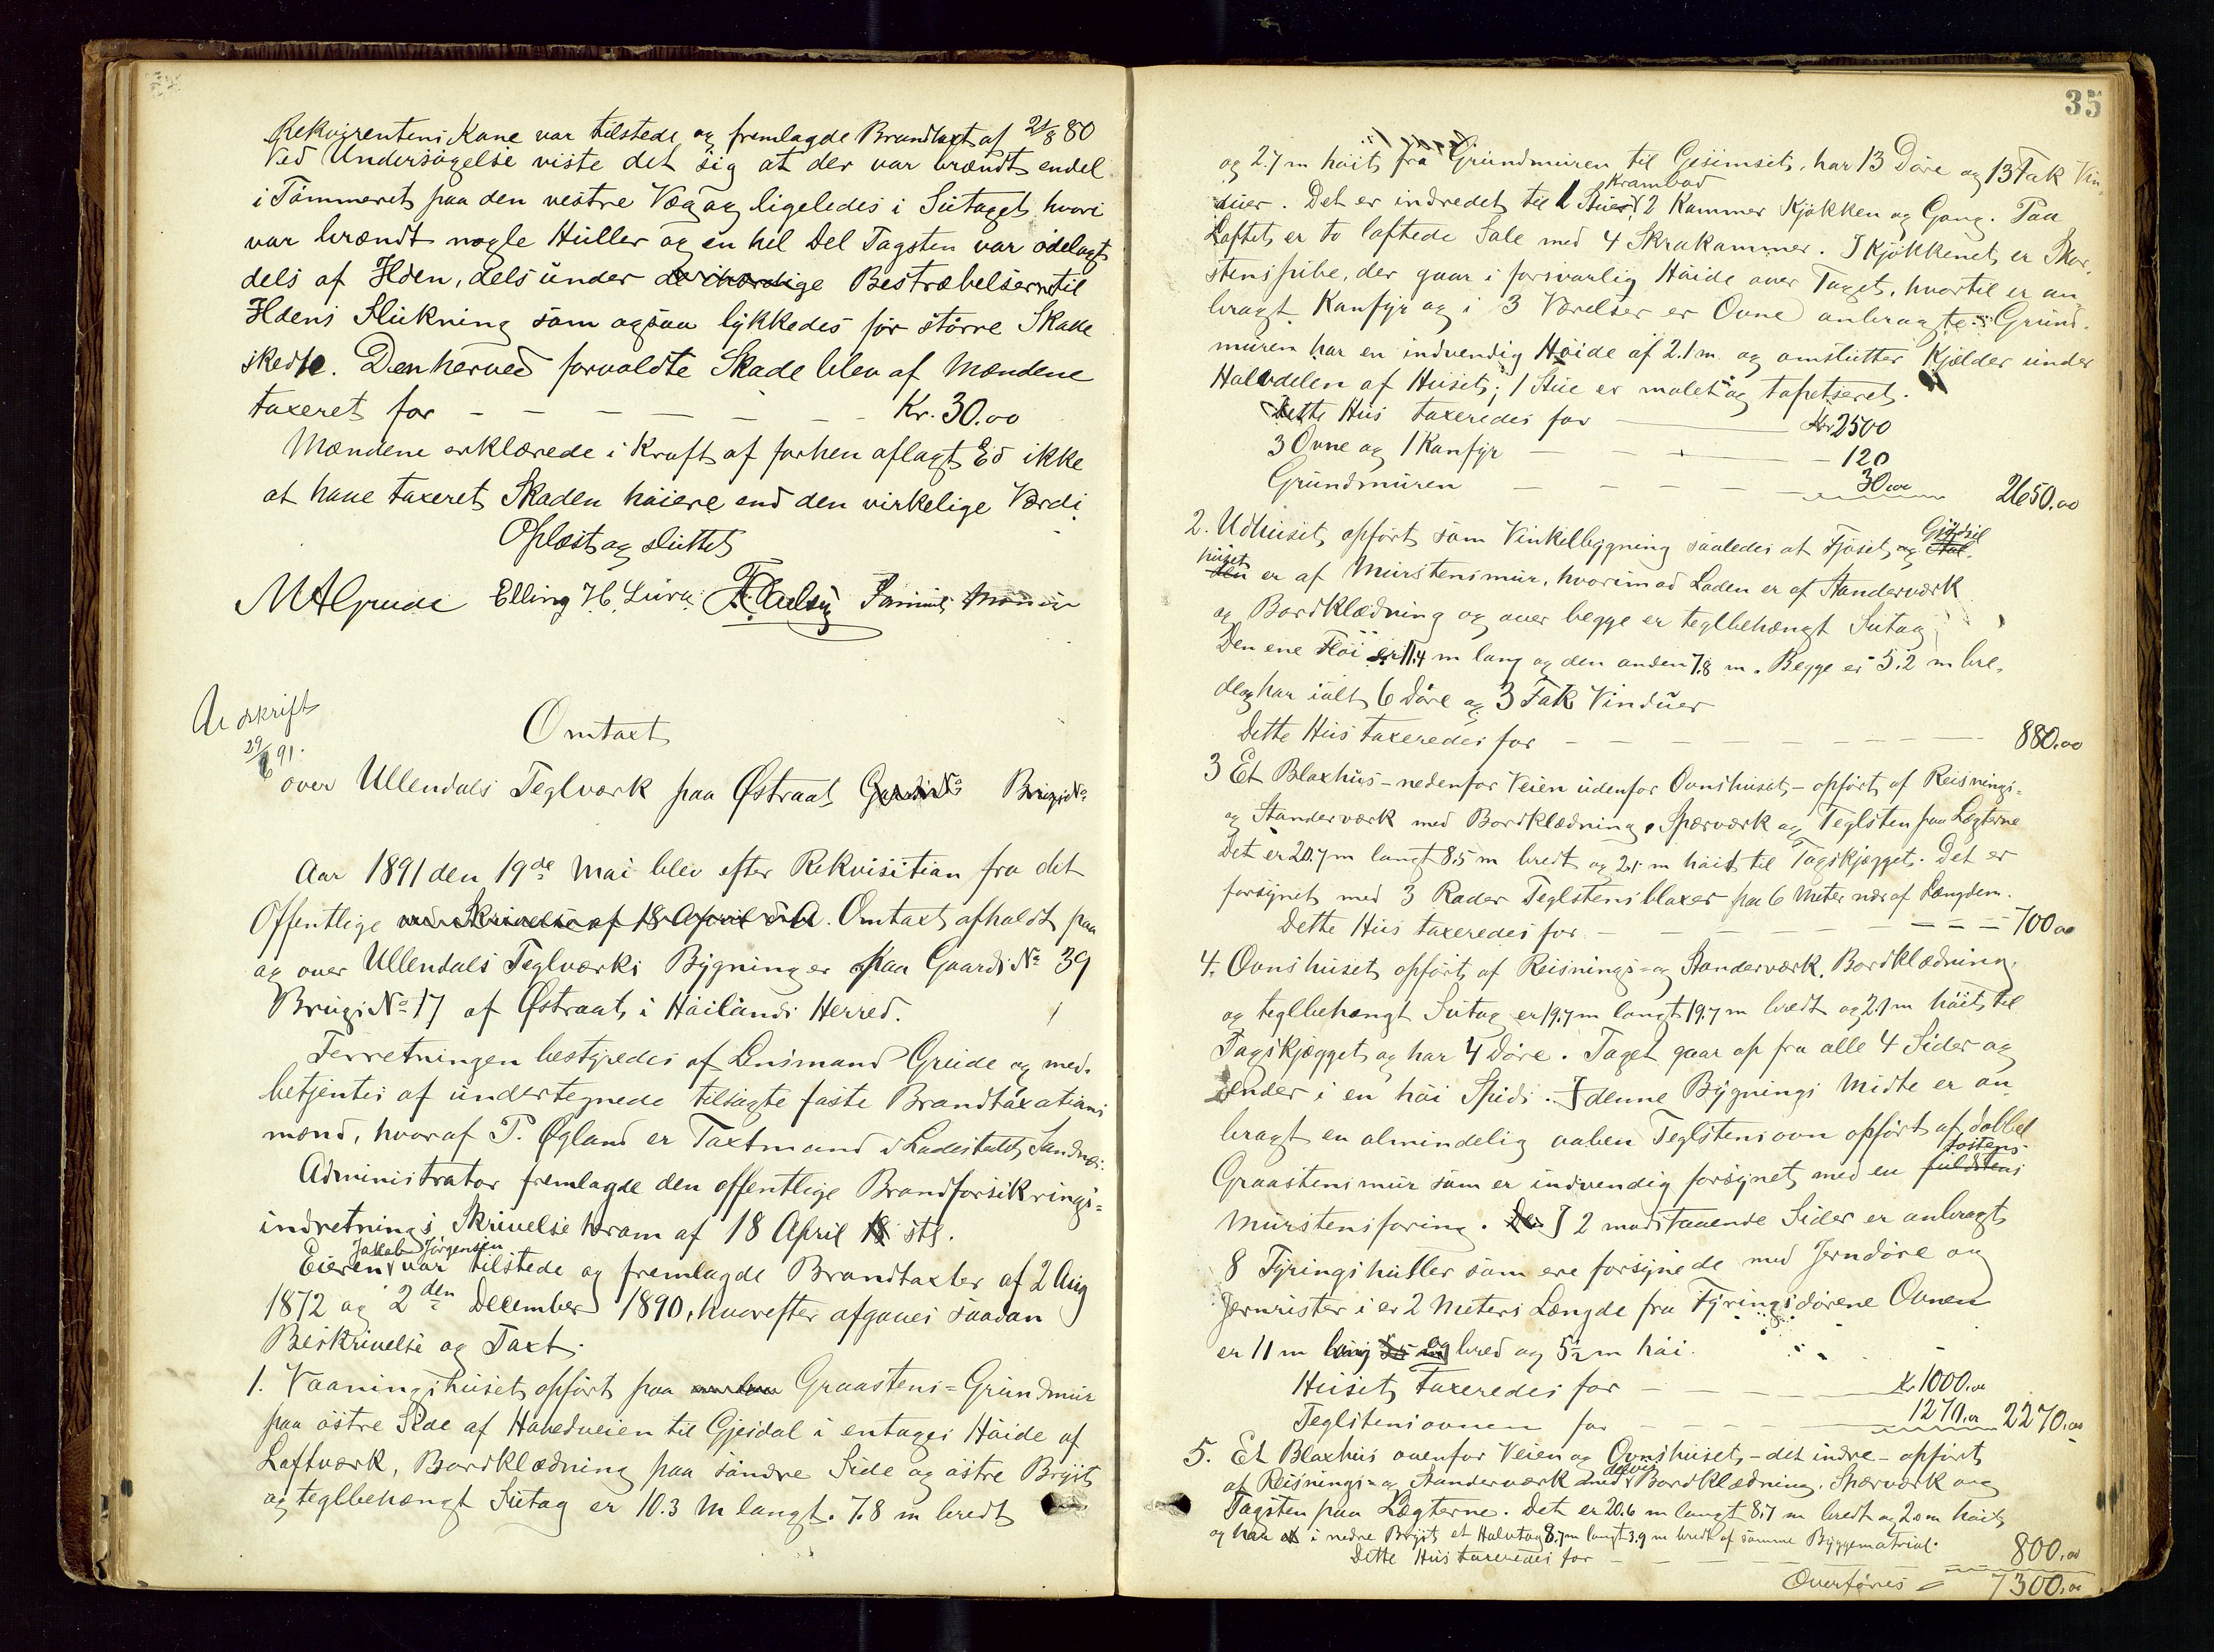 Rekvirentens Kone var tilstede og fremlagde Brandtaxt af 21/8 80
Ved Undersøgelse viste det sig at der var brændt endel
i Tømmeret paa den vestre Væg og ligeledes i Sutaget hvori
var brændt nogle Huller og en hel Del Tagsten var ødelagt
dels af Ilden, dels under de ihærdige Bestræbelserne til
Ildens Slukning som ogsaa lykkedes før større Skade
skedte. Den herved forvoldte Skade blev af Mændene
taxeret for — — — — — — Kr. 30.00
Mændene erklærede i Kraft af forhen aflagt Ed ikke
at have taxeret Skaden høiere end den virkelige Værdi.
Oplæst og sluttet
M A Grude Elling H. Lura
Afskrift
29/6 91.
Omtaxt
over Ullendals Teglværk paa Østraat Gaards No Brugs No
Aar 1891 den 19de Mai blev efter Rekvisition fra det
Offentlige ved Skrivelse af 18 April d. A. Omtaxt afholdt paa
og over Ullendals Teglværks Bygninger paa Gaards No 39
Brugs No 17 af Østraat i Høilands Herred.
Forretningen bestyredes af Lensmand Grude og med-
betjentes af undertegnede tilsagte faste Brandtaxations
mænd, hvoraf P. Øgland er Taxtmand i Ladestedet Sandnes.
Administrator fremlagde den offentlige Brandforsikrings-
indretnings Skrivelse herom af 18 April 18 sts.
Jakob Jørgensen
Eieren var tilstede og fremlagde Brandtaxter af 2 Aug
1872 og 2den December 1890, hvorefter afgaves saadan
Beskrivelse og Taxt.
1. Vaaningshuset opført paa Graastens-Grundmur
paa østre Side af Hovedveien til Gjesdal i entages Høide af
Loftværk, Bordklædning paa søndre Side og østre Bryst
og teglbehængt Sutag er 10.3 m langt. 7.8 m bredt
35
og 2.7 m høit fra Grundmuren til Gesimset, har 13 Døre og 13 Fak Vin-
Krambod
duer. Det er indredet til 1 Stue 2 Kammer Kjøkken og Gang. Paa
Loftet er to loftede Sale med 4 Skrakammer. I Kjøkkenet er Skor-
stenspibe, der gaar i forsvarlig Høide over Taget, hvortil er an-
bragt Komfyr og i 3 Værelser er Ovne anbragte. Grund-
muren har en indvendig Høide af 2.1 m. og omslutter Kjelder under
Halvdelen af Huset; 1 Stue er malet og tapetseret.
Dette Hus taxeredes for — Kr 2500
3 Ovne og 1 Komfyr — — — 120
Grundmuren — — — — 30.00 2650.00
2. Udhuset, opført som Vinkelbygning saaledes at Fjøset og Gjødsel
huset er af Murstensmur, hvorimod Laden er af Standerværk
og Bordklædning og over begge er teglbehængt Sutag
Den ene Fløi er 11.4 m lang og den anden 7.8 m. Begge er 5.2 m bre-
de og har ialt 6 Døre og 3 Fak Vinduer
Dette Hus taxeredes for — — — — — 880.00
3 Et Blaxhus - nedenfor Veien udenfor Ovnshuset, - opført af Reisnings-
og Standerværk med Bordklædning, Spærværk og Teglsten paa Lægterne
Det er 20.7 m langt 8.5 m bredt og 2.5 m høit til Tagskjægget. Det er
forsynet med 3 Rader Teglstensblaxer paa 6 Meter nær af Længden.
Dette Hus taxeredes for — — — — — 700.00
4. Ovnshuset opført af Reisnings- og Standerværk, Bordklædning
og teglbehængt Sutag er 19.7 m langt 19.7 m bredt og 2.1 m høit til
Tagskjægget og har 4 Døre. Taget gaar op fra alle 4 Sider og
ender i en høi Spids. I denne Bygnings Midte er an-
bragt en almindelig aaben Teglstensovn opført af dobbel
tostens
Graastensmur som er indvendig forsynet med en fuldstens
Murstensforing. I 2 modstaaende Sider er anbragt
8 Fyringshuller som ere forsynede med Jerndøre og
Jernrister i er 2 Meters Længde fra Fyringsdørene Ovnen
er 11 m lang og bred og 5½ m høi.
Huset taxeredes for — — — Kr 1000.00
Teglstensovnen for — — — 1270.00 2270.00
5. Et Blaxhus ovenfor Veien og Ovnshuset, - det indre - opført
delvis
af Reisnings- og Standerværk med Bordklædning, Spærværk og
Tagsten paa Lægterne. Det er 20.6 m langt 8.7 m bredt og 2.0 m høit
og har i nedre Bryst et Halvtag 8.7 m langt 3.9 m bredt af samme Byggematrial.
Dette Hus taxeredes for — — — 800.00
Overføres = 7300.00